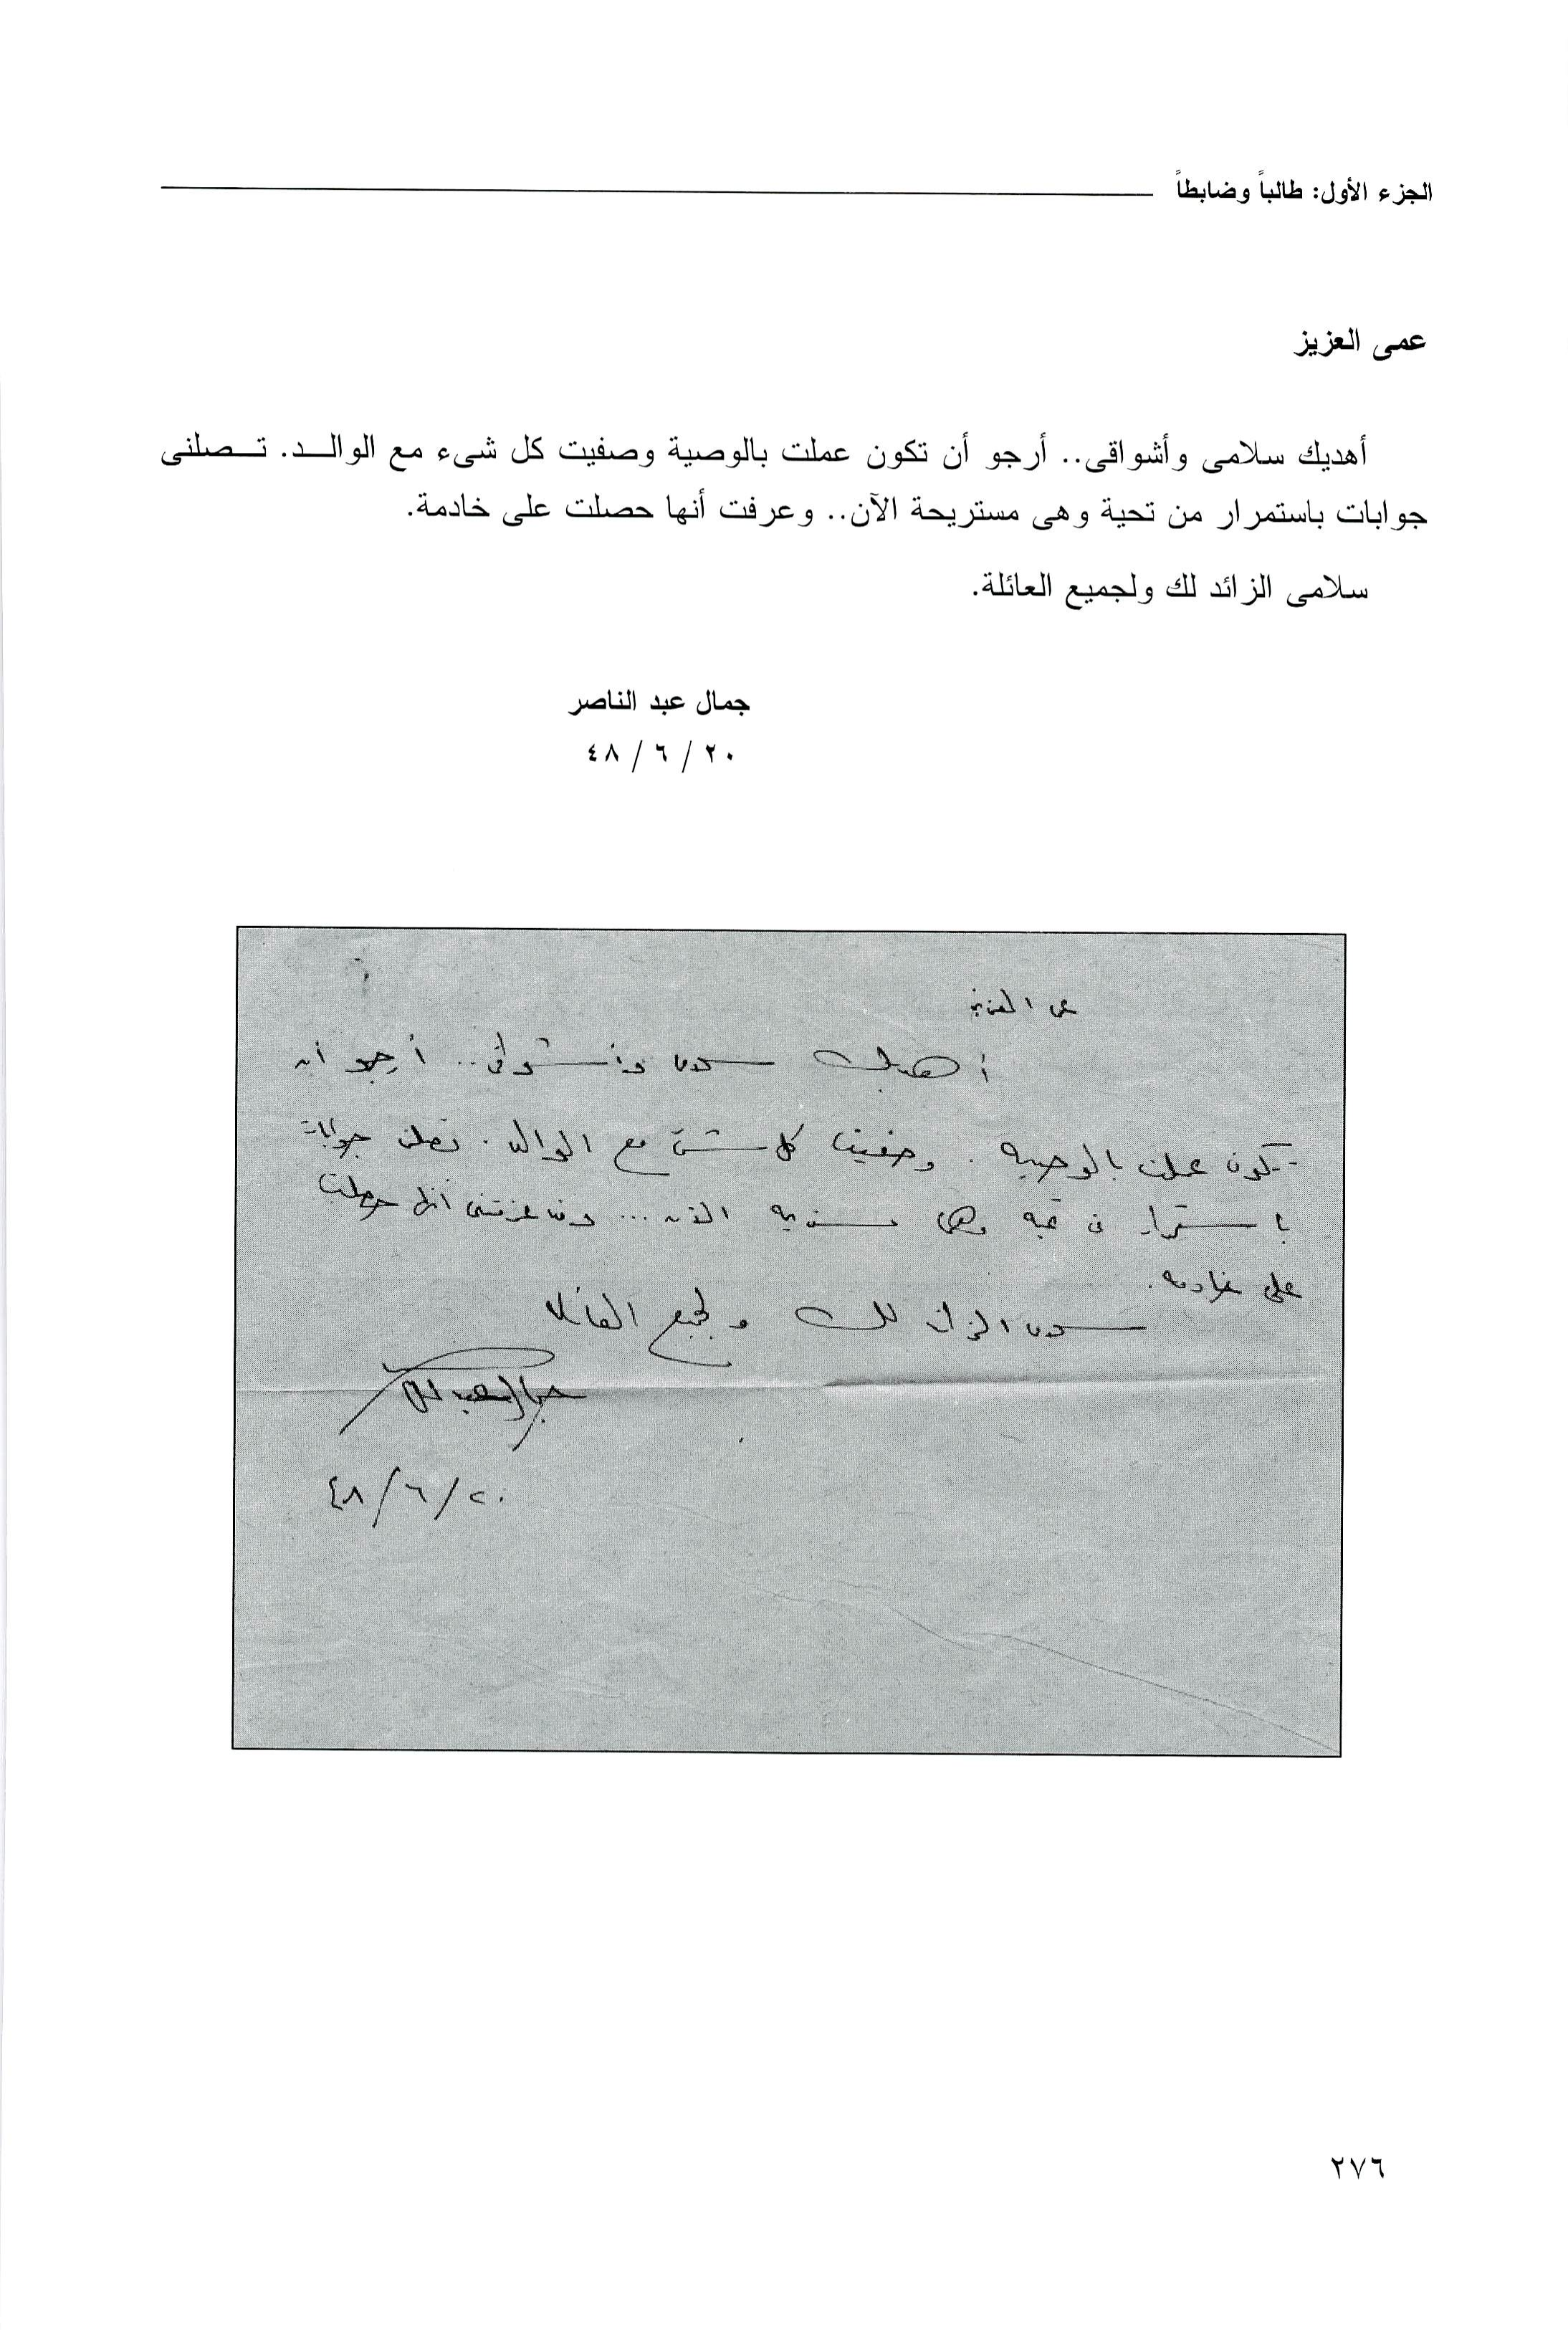 الجزء الأول: طالباً وضابطاً
عمى العزيز
أهديك سلامى وأشواقى.. أرجو أن تكون عملت بالوصية وصفيت كل شىء مع الوالد. تصلنى
جوابات باستمرار من تحية وهى مستريحة الآن.. وعرفت أنها حصلت على خادمة.
سلامى الزائد لك ولجميع العائلة.
جمال عبد الناصر
٢٠ / ٦ / ٤٨
عمى العزيز
أهديك سلامى وأشواقى.. أرجو أن
تكون عملت بالوصيه. وصفيت كل شىء مع الوالد. تصلنى جوابات
باستمرار من تحيه وهى مستريحه الآن... وقد عرفتنى أنها حصلت
على خادمه.
سلامى الزائد لك ولجميع العائله
جمال عبد الناصر
٢٠/٦/٤٨
٢٧٦